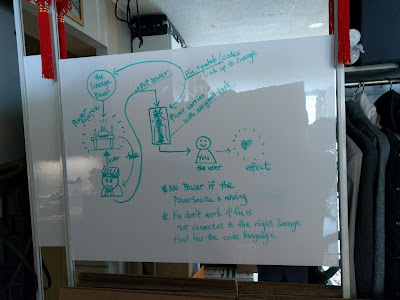 Fu symbols/codes
link up to lineage
the
lineage
Power
input power
Power carrier
with assigned task
Power
You
the user
effect
* No Power if the
Powersource is missing
* Fu don't work if Fu is
not connected to the right lineage
that has the code language.